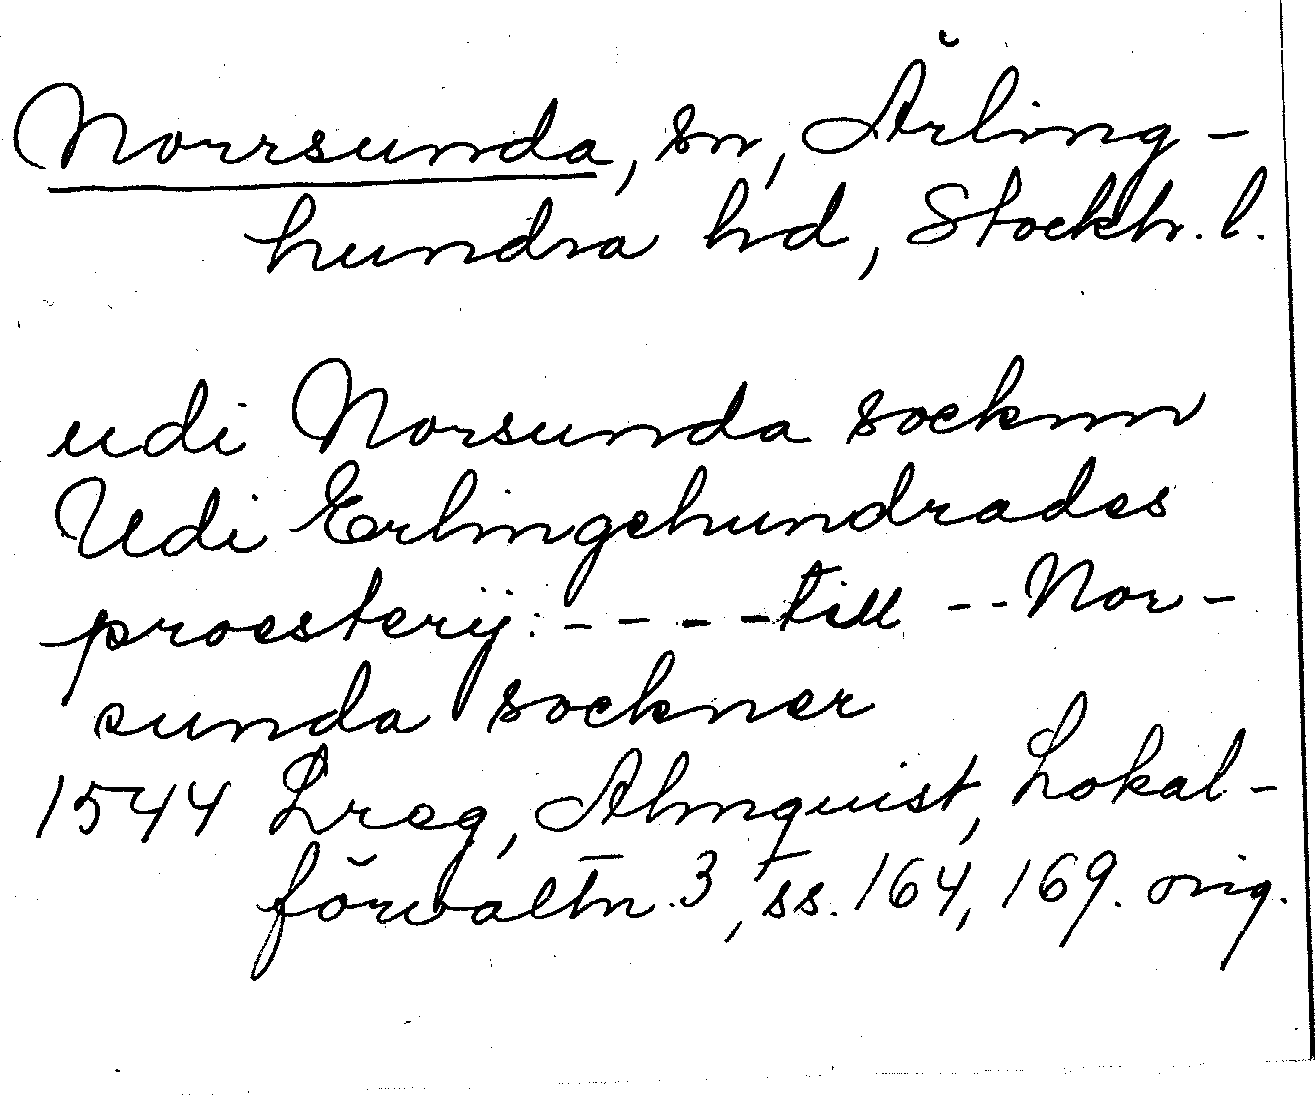 Norrsunda, sn, Ärling-
hundra hd, Stockh. l.
udi Norsunda socknn
Udi Erlingehundrades
proesterij: - - - - till - - Nor-
sunda sockner
1544 Lreg, Almquist, Lokal-
förvaltn. 3, ss. 164, 169. orig.